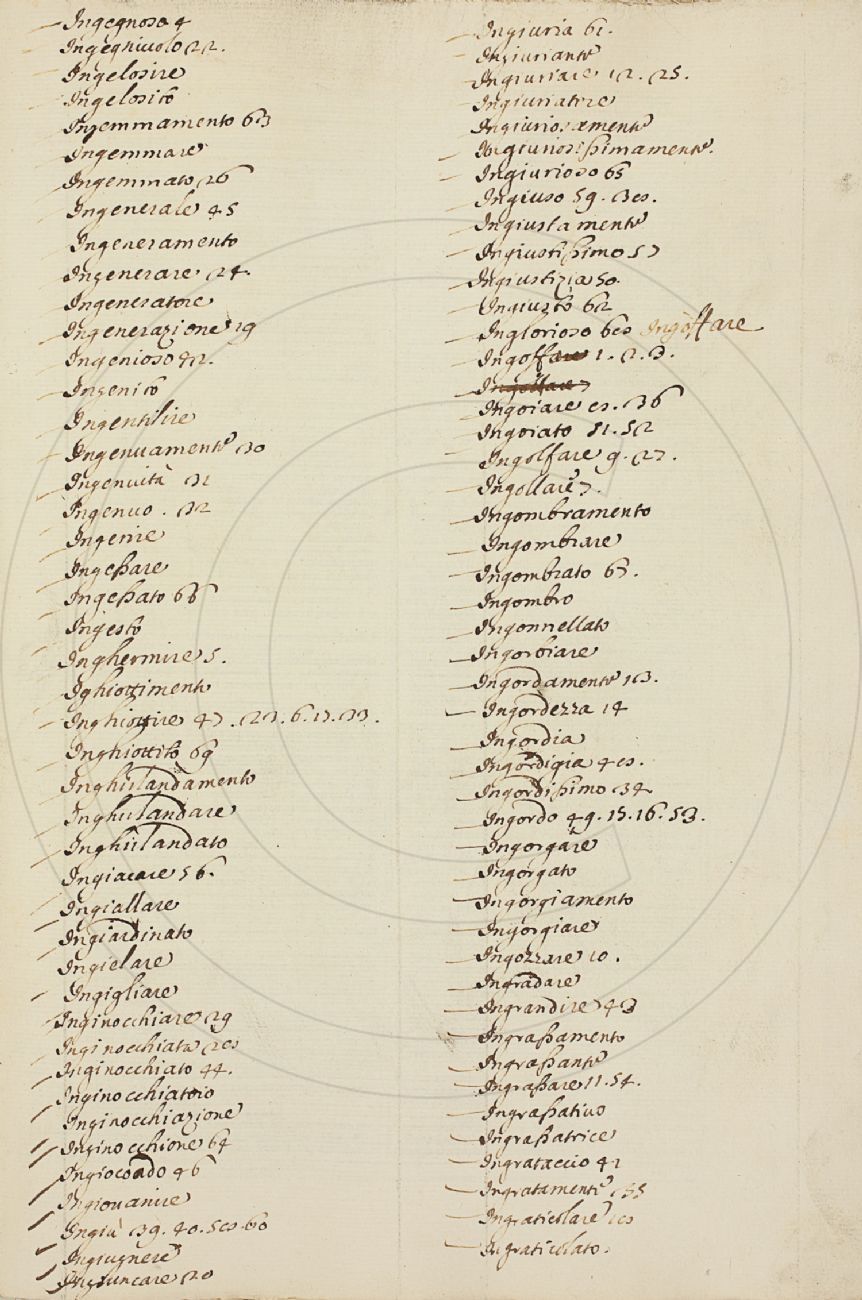 Ingegnoso 4
Ingeghiuolo 22.
Ingelosire
Ingelosito
Ingemmamento 63
Ingemmare
Ingemmato 26
Ingenerale 45
Ingeneramento
Ingenerare 24.
Ingeneratore
Ingenerazione 19
Ingenioso 42.
Ingenito
Ingentilire
Ingenuamente 30
Ingenuità 31
Ingenuo. 32
Ingerire
Ingeßare
Ingeßato 66
Ingesto
Inghermire 5.
Ighiottimento
Inghiottire 47. 23. 6. 17. 33.
Inghiottito 69
Inghirlandamento
Inghirlandare
Inghirlandato
Ingiacare 56.
Ingiallare
Ingiardinato
Ingielare
Ingigliare
Inginocchiare 29
Inginocchiata 28
Inginocchiato 44.
Inginocchiatoio
Inginocchiazione
Inginocchione 64
Ingiocondo 46
Ingiouanire
Ingiù 39. 40. 58. 60
Ingiugnere
Ingiuncare 20
Ingiuria 61.
Ingiuriante
Ingiuriare 12. 25.
Ingiuriatore
Ingiuriosamente
Ingiuriosißimamente.
Ingiurioso 65
Ingiuso 59. 38.
Ingiustamente
Ingiustißimo 57
Ingiustizia 50.
Ingiusto 62
Inglorioso 68 Ingoffare
Ingoffare 1. 2. 3.
Ingoiare 8. 36
Ingoiato 51. 52
Ingolfare 9. 27.
Ingollare 7.
Ingombramento
Ingombrare
Ingombrato 67.
Ingombro
Ingonnellato
Ingorbiare
Ingordamente 13.
Ingordezza 14
Ingordia
Ingordigia 48.
Ingordißimo 34.
Ingordo 49. 15. 16. 53.
Ingorgare
Ingorgato
Ingorgiamento
Ingorgiare
Ingozzare 10.
Ingradare
Ingrandire 43
Ingraßamento
Ingraßante
Ingraßare 11. 54.
Ingraßatiuo
Ingraßatrice
Ingrataccio 41
Ingratamente 55
Ingraticolare 18
Ingraticolato.